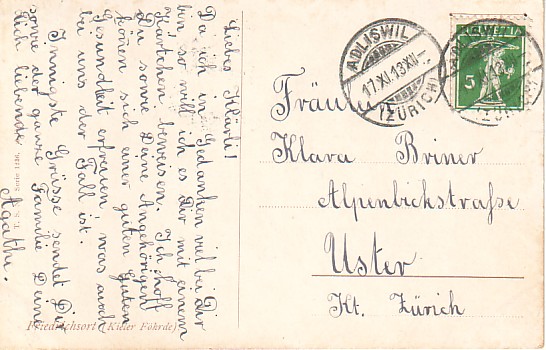 Liebes Klärli!
Da ich in Gedanken viel bei Dir
bin, so will ich es Dir mit einem
Kärtchen beweisen. Ich hoffe
Du sowie Deine Angehörigen
können sich einer guten
Gesundheit erfreuen, was auch
bei uns der Fall ist.
Innigste Grüsse sendet Dir
sowie der ganzen Familie Deine
Dich liebende
Agathe.
Friedrichsort (Kieler Föhrde)
ADLISWIL
17.XI.13.XII-
(ZÜRICH)
HELVETIA
5
Fräulein
Klara Briner
Alpenblickstrasse
Uster
Kt. Zürich